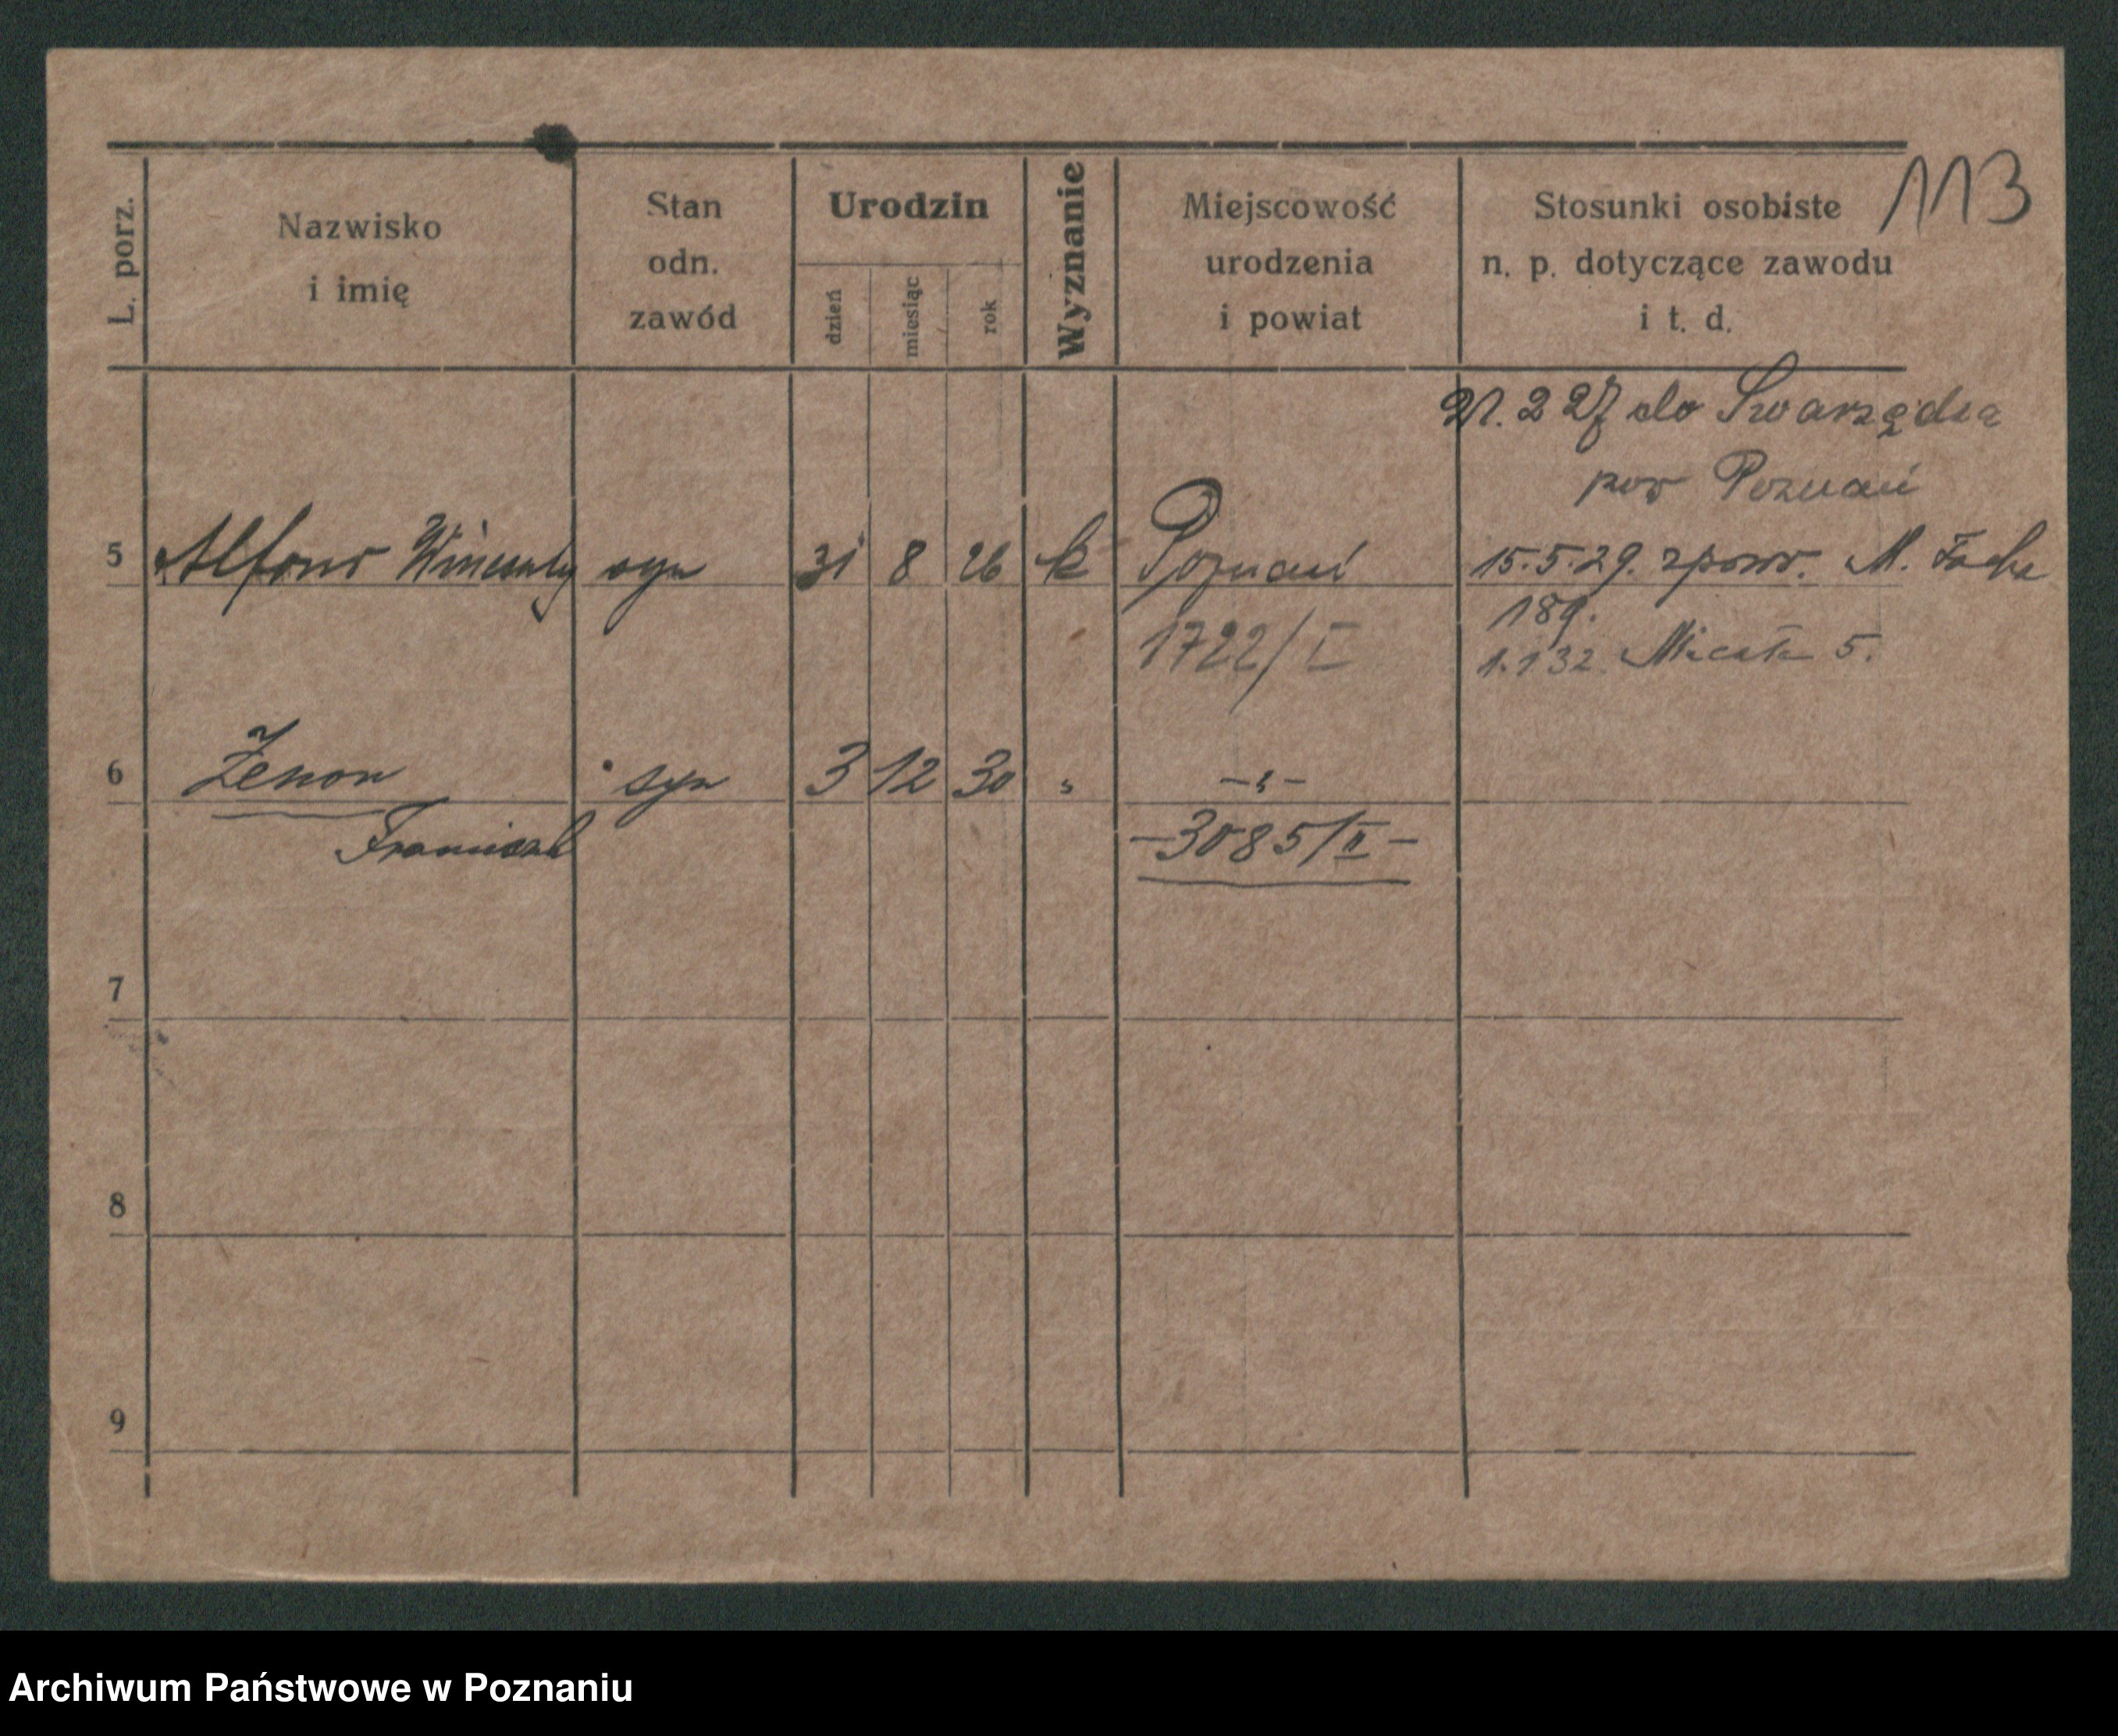 113
L. porz.
Nazwisko
i imię
Stan
odn.
zawód
Urodzin
dzień
miesiąc
rok
Wyznanie
Miejscowość
urodzenia
i powiat
Stosunki osobiste
n. p. dotyczące zawodu
i t. d.
21. 2 27 do Swarzędza
pow Poznań
5 Alfons Wincenty syn 31 8 26 k Poznań 15.5.29. zpow. M. Focha
189.
1722/I
1.1 32.
5.
6 Zenon syn 3 12 30 " -"-
Franciszek
-3085/II-
7
8
9
Archiwum Państwowe w Poznaniu